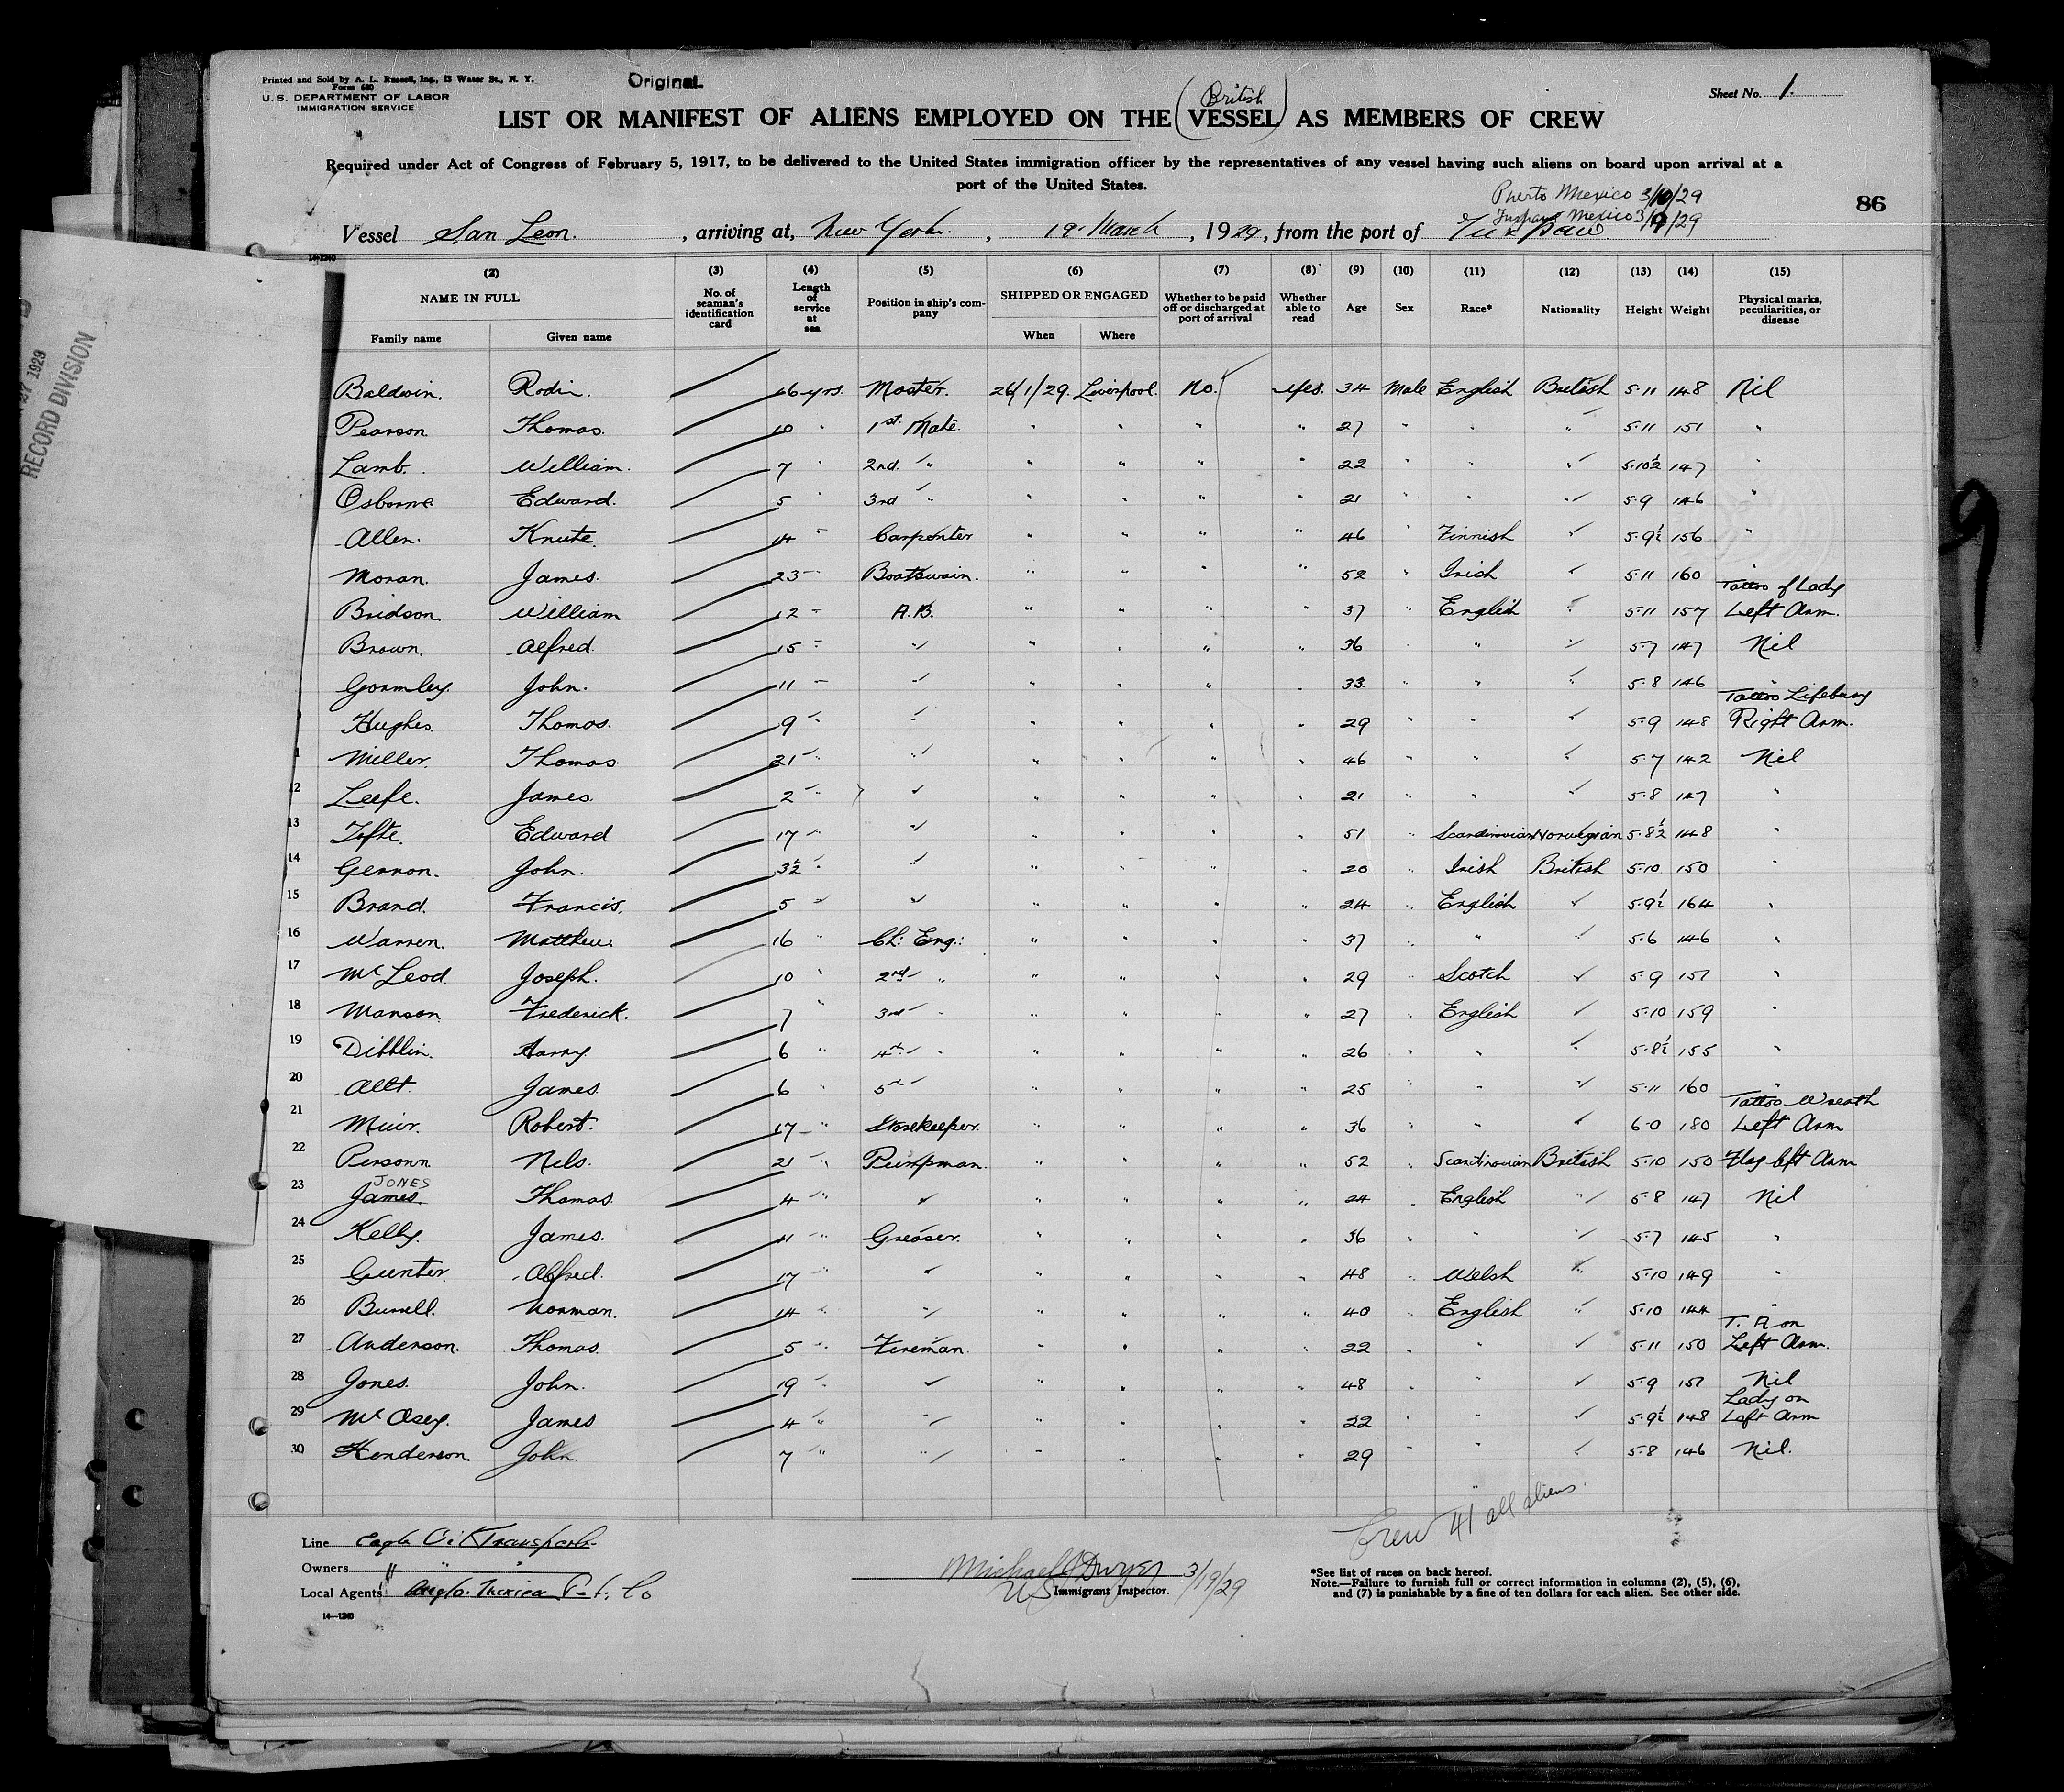 Printed and Sold by A. L. Russell, Inc., 13 Water St., N. Y.
Form 680
U. S. DEPARTMENT OF LABOR
IMMIGRATION SERVICE
Original
Sheet No. 1.
British
LIST OR MANIFEST OF ALIENS EMPLOYED ON THE (VESSEL) AS MEMBERS OF CREW
Required under Act of Congress of February 5, 1917, to be delivered to the United States immigration officer by the representatives of any vessel having such aliens on board upon arrival at a
port of the United States.
Puerto Mexico 3/10/29
Tuxpan Mexico 3/9/29
86
Vessel San Leon, arriving at, New York, March, 1929, from the port of Tuxpan
14-1240
(2) (3) (4) (5) (6) (7) (8) (9) (10) (11) (12) (13) (14) (15)
NAME IN FULL No. of seaman's identification card Length of service at sea Position in ship's company SHIPPED OR ENGAGED Whether to be paid off or discharged at port of arrival Whether able to read Age Sex Race* Nationality Height Weight Physical marks, peculiarities, or disease
Family name Given name When Where
Baldwin. Rodin. yrs. Master. 26/1/29. Liverpool. No. yes. 34 Male English British 5·11 148 Nil
Pearson Thomas. 10 " 1st Mate. " " " " 27 " " " 5·11 151 "
Lamb. William. 7 " 2nd. " " " " " 22 " " " 5·10½ 147 "
Osborne Edward. 5 " 3rd " " " " " 21 " " " 5·9 146 "
Allen. Knute. 14 " Carpenter " " " " 46 " Finnish " 5·9½ 156 "
Moran. James. 23 " Boatswain. " " " " 52 " Irish " 5·11 160 "
Tattoo of Lady
Bridson. William 12 " A.B. " " " " 37 " English " 5·11 157 Left Arm.
Brown. Alfred. 15 " " " " " " 36 " " " 5·7 147 Nil
Gormley. John. 11 " " " " " " 33. " " " 5·8 146 "
Tattoo Lifebuoy
Hughes. Thomas. 9 " " " " " " 29 " " " 5·9 148 Right Arm.
1 Miller. Thomas 21 " " " " " " 46 " " " 5·7 142 Nil
2 Leefe. James. 2 " " " " " " 21 " " " 5·8 147 "
13 Tofte. Edward 17 " " " " " " 51 " Scandinavian Norwegian 5·8½ 148 "
14 Gernon. John. 3½ " " " " " " 20 " Irish British 5·10 150 "
15 Brand. Francis. 5 " " " " " " 24 " English " 5·9½ 164 "
16 Warren. Matthew 16 " Ch: Eng: " " " " 37 " " " 5·6 146 "
17 McLeod. Joseph. 10 " 2nd " " " " " 29 " Scotch " 5·9 151 "
18 Manson Frederick. 7 " 3rd " " " " " 27 " English " 5·10 159 "
19 Dibblin. Harry. 6 " 4th " " " " " 26 " " " 5·8½ 155 "
20 Allt. James. 6 " 5th " " " " 25 " " " 5·11 160 "
Tattoo Wreath
21 Muir. Robert. 17 " Storekeeper. " " " " 36 " " " 6·0 180 Left Arm
22 Personn Nels. 21 " Pumpman. " " " " 52 " Scandinavian British 5·10 150 Flag left Arm
JONES
23 James. Thomas 4 " " " " " " 24 " English " 5·8 147 Nil
24 Kelly. James. 11 " Greaser. " " " " 36 " " " 5·7 145 "
25 Gunter. Alfred. 17 " " " " " " 48 " Welsh " 5·10 149 "
26 Burrell. Norman. 14 " " " " " " 40 " English " 5·10 144 "
T. A on
27 Anderson. Thomas. 5 " Fireman. " " " " 22 " " " 5·11 150 Left Arm.
28 Jones. John. 19 " " " " " " 48 " " " 5·9 151 Nil
Lady on
29 McOsey. James 4 " " " " " " 22 " " " 5·9½ 148 Left Arm
30 Henderson John. 7 " " " " " " 29 " " " 5·8 146 Nil.
Crew 41 all aliens.
Line Eagle Oil Transport
Owners " " "
Local Agents Anglo. Mexican Co
Michael O'Dwyer 3/19/29
US Immigrant Inspector.
*See list of races on back hereof.
Note.—Failure to furnish full or correct information in columns (2), (5), (6),
and (7) is punishable by a fine of ten dollars for each alien. See other side.
14—1240
27 1929
RECORD DIVISION
9